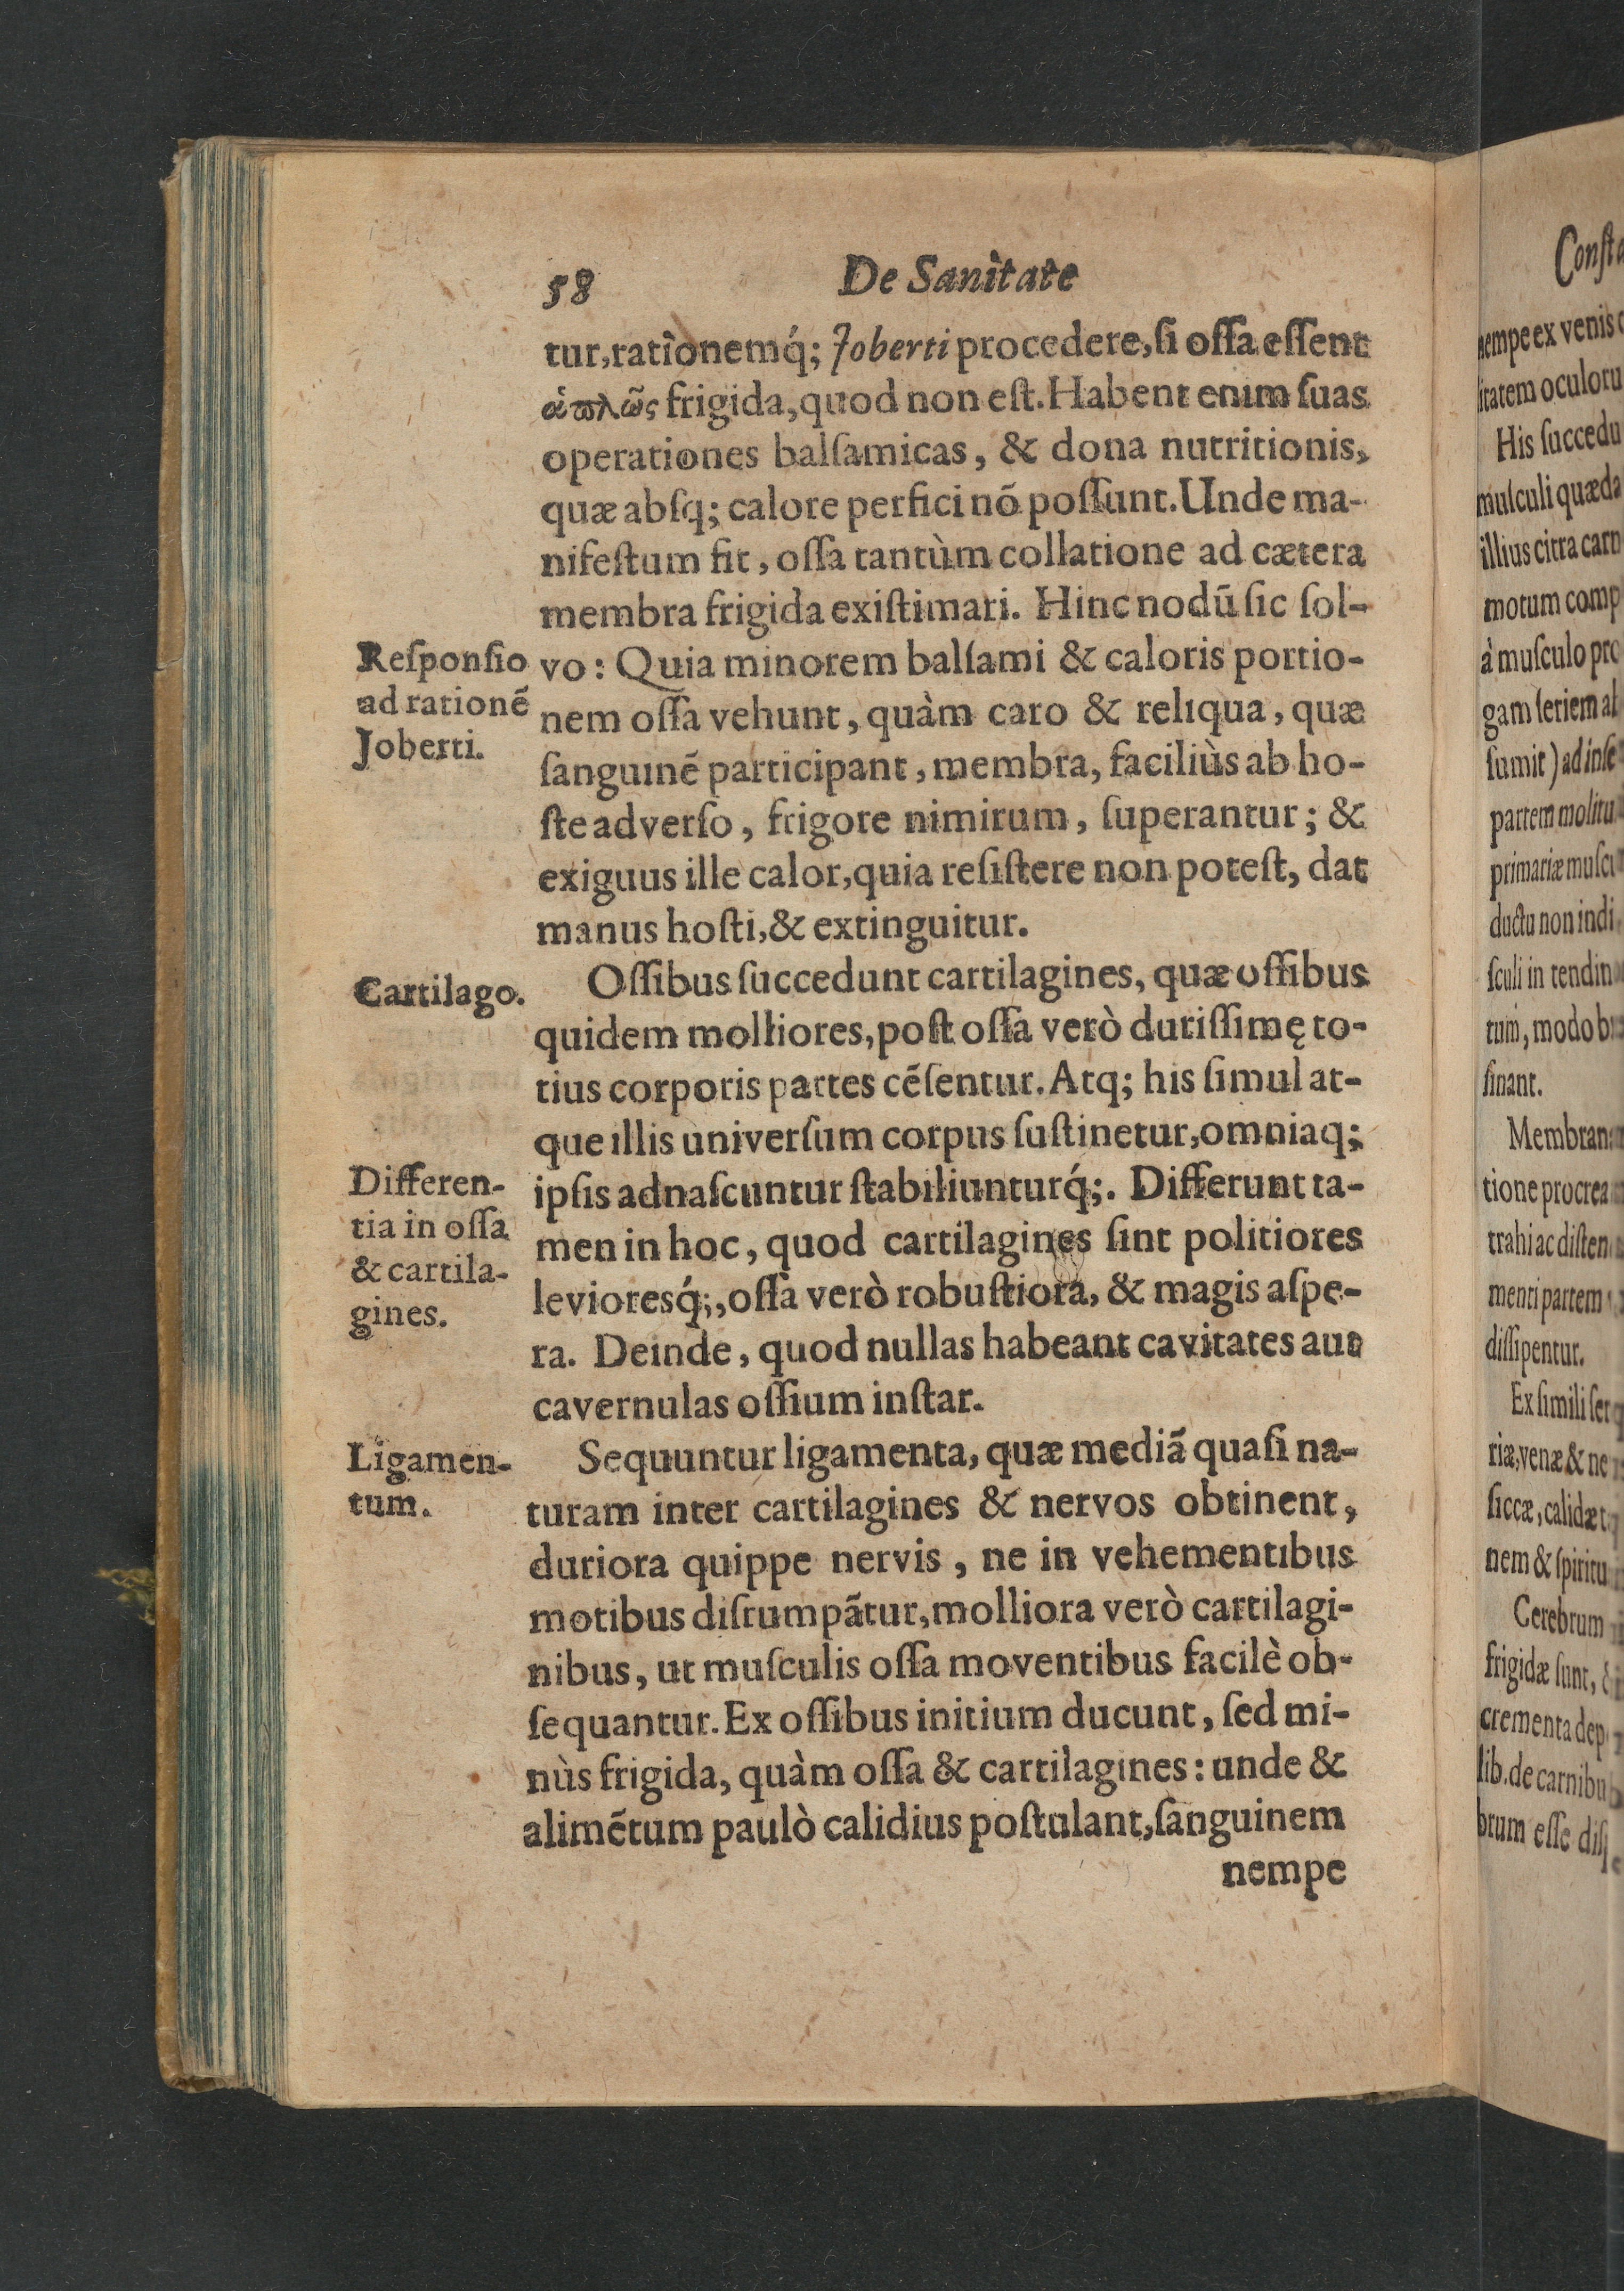 58 De Sanitate
tur, rationemq́; Joberti procedere, ſi oſſa eſſent
ἁπλῶς frigida, quod non eſt. Habent enim ſuas
operationes balſamicas, & dona nutritionis,
quæ abſq; calore perfici nõ poſſunt. Unde ma-
nifeſtum fit, oſſa tantùm collatione ad cætera
membra frigida exiſtimari. Hinc nodũ ſic ſol-
Reſponſio
ad rationẽ
Joberti.
vo: Quia minorem balſami & caloris portio-
nem oſſa vehunt, quàm caro & reliqua, quæ
ſanguinẽ participant, membra, faciliùs ab ho-
ſte adverſo, frigore nimirum, ſuperantur; &
exiguus ille calor, quia reſiſtere non poteſt, dat
manus hoſti, & extinguitur.
Cartilago.
Oſſibus ſuccedunt cartilagines, quæ oſſibus
quidem molliores, poſt oſſa verò duriſſimę to-
tius corporis partes cẽſentur. Atq; his ſimul at-
que illis univerſum corpus ſuſtinetur, omniaq;
Differen-
tia in oſſa
& cartila-
gines.
ipſis adnaſcuntur ſtabiliunturq́;. Differunt ta-
men in hoc, quod cartilagines ſint politiores
levioresq́;, oſſa verò robuſtiora, & magis aſpe-
ra. Deinde, quod nullas habeant cavitates aut
cavernulas oſſium inſtar.
Ligamen-
tum.
Sequuntur ligamenta, quæ mediã quaſi na-
turam inter cartilagines & nervos obtinent,
duriora quippe nervis, ne in vehementibus
motibus diſrumpãtur, molliora verò cartilagi-
nibus, ut muſculis oſſa moventibus facilè ob-
ſequantur. Ex oſſibus initium ducunt, ſed mi-
nùs frigida, quàm oſſa & cartilagines: unde &
alimẽtum paulò calidius poſtulant, ſanguinem
nempe
nempe ex venis
itatem
His
muſculi
illius citra
motum
à muſculo
gam ſeriem
ſumit) ad
partem
primariæ
ductu non
ſculi in
tum, modo
ſinant.
tione
trahi ac
menti partem
diſſipentur.
Ex ſimili
riæ, venæ &
ſiccæ,
nem &
Cerebrum
frigidæ ſunt,
crementa
lib. de
brum eſſe